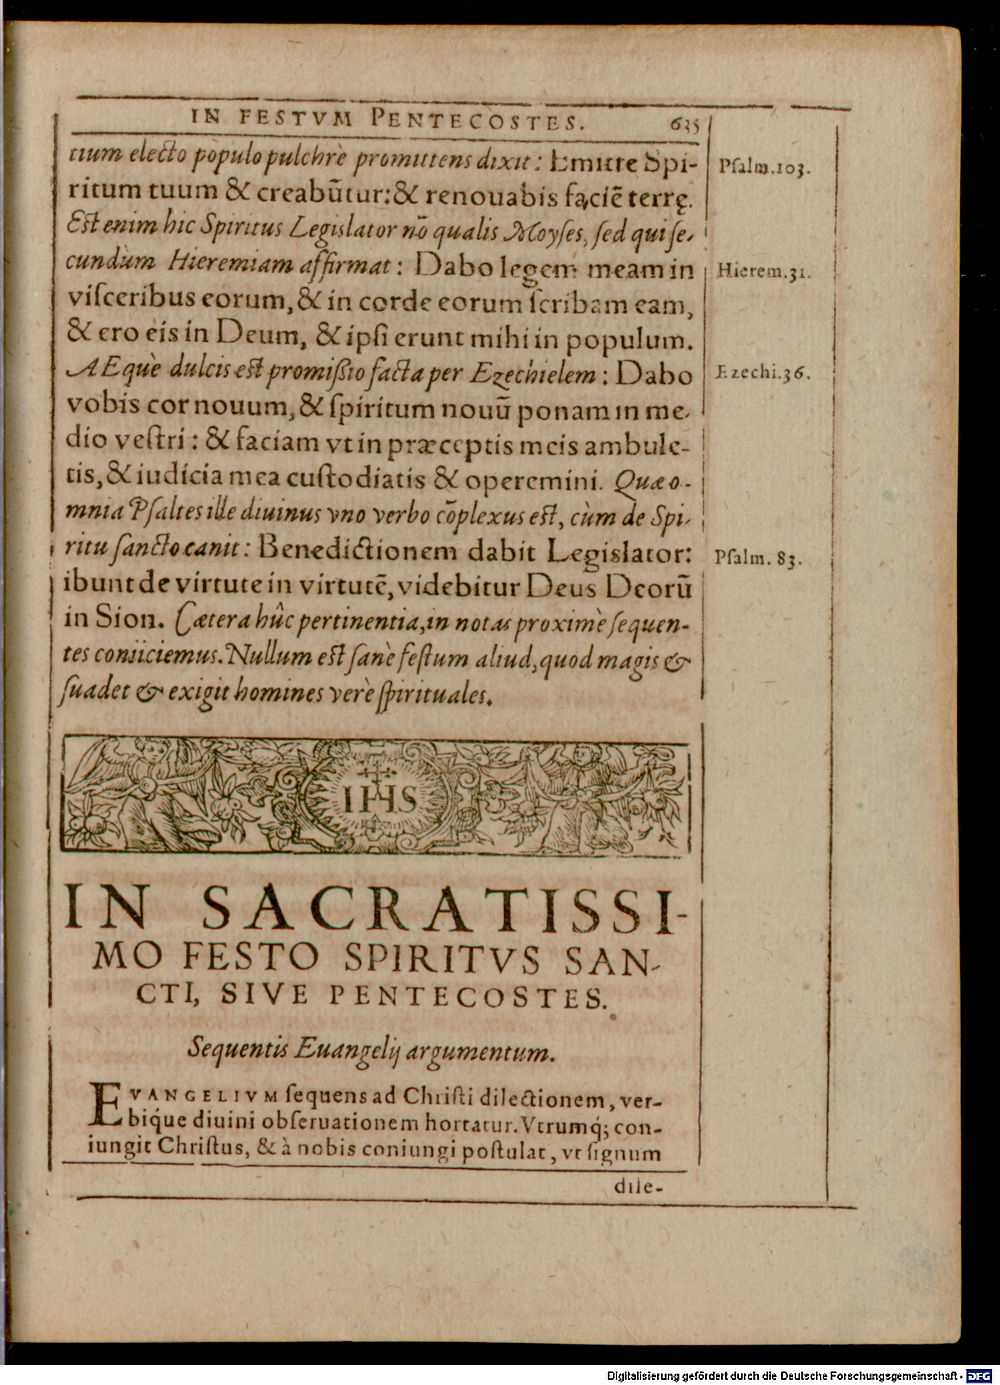 IN FESTVM PENTECOSTES. 635
tium electo populo pulchrè promittens dixit: Emitte Spi-
ritum tuum & creabūtur: & renouabis faciē terrę.
Psalm.103.
Est enim hic Spiritus Legislator nō qualis Moyses, sed qui se-
cundùm Hieremiam affirmat: Dabo legem meam in
Hierem.31.
visceribus eorum, & in corde eorum scribam eam,
& ero eis in Deum, & ipsi erunt mihi in populum.
AEquè dulcis est promißio facta per Ezechielem: Dabo
Ezechi.36.
vobis cor nouum, & spiritum nouū ponam in me-
dio vestri: & faciam vt in præceptis meis ambule-
tis, & iudicia mea custodiatis & operemini. Quæ o-
mnia Psaltes ille diuinus vno verbo cōplexus est, cùm de Spi-
ritu sancto canit: Benedictionem dabit Legislator:
Psalm. 83.
ibunt de virtute in virtutē, videbitur Deus Deorū
in Sion. Cætera hûc pertinentia, in notas proximè sequen-
tes coniiciemus. Nullum est sanè festum aliud, quod magis &
suadet & exigit homines verè spirituales.
IHS
IN SACRATISSI-
MO FESTO SPIRITVS SAN-
CTI, SIVE PENTECOSTES.
Sequentis Euangelij argumentum.
EVANGELIVM sequens ad Christi dilectionem, ver-
bique diuini obseruationem hortatur. Vtrumq́; con-
iungit Christus, & à nobis coniungi postulat, vt signum
dile-
Digitalisierung gefördert durch die Deutsche Forschungsgemeinschaft - DFG